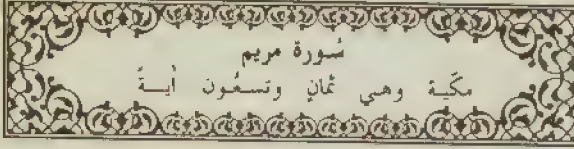 سُورة مريم
مكّية وهي ثمانٍ وتسعُون أيـةً